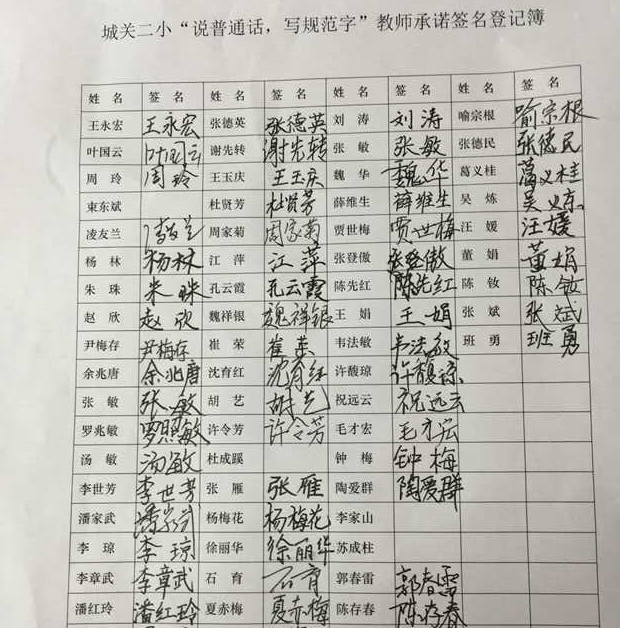 城关二小“说普通话，写规范字”教师承诺签名登记簿
姓 名 签 名 姓 名 签 名 姓 名 签 名 姓 名 签 名
王永宏 王永宏 张德英 张德英 刘 涛 刘涛 喻宗根 喻宗根
叶国云 叶国云 谢先转 谢先转 张 敏 张敏 张德民 张德民
周 玲 周玲 王玉庆 王玉庆 魏 华 魏华 葛义桂 葛义桂
束东斌 杜贤芳 杜贤芳 薛维生 薛维生 吴 炼 吴义东
凌友兰 凌友兰 周家菊 周家菊 贾世梅 贾世梅 汪 媛 汪媛
杨 林 杨林 江 萍 江萍 张登傲 张登傲 董 娟 董娟
朱 珠 朱珠 孔云霞 孔云霞 陈先红 陈先红 陈 钕 陈钕
赵 欣 赵欣 魏祥银 魏祥银 王 娟 王娟 张 斌 张斌
尹梅存 尹梅存 崔 荣 崔荣 韦法敏 韦法敏 班 勇 班勇
余兆唐 余兆唐 沈育红 沈育红 许馥琼 许馥琼
张 敏 张敏 胡 艺 胡艺 祝远云 祝远云
罗兆敏 罗照敏 许令芳 许令芳 毛才宏 毛才宏
汤 敏 汤敏 杜成蹊 钟 梅 钟梅
李世芳 李世芳 张 雁 张雁 陶爱群 陶爱群
潘家武 潘家武 杨梅花 杨梅花 李家山
李 琼 李琼 徐丽华 徐丽华 苏成柱
李章武 李章武 石 育 石育 郭春雷 郭春雷
潘红玲 潘红玲 夏赤梅 夏赤梅 陈存春 陈存春